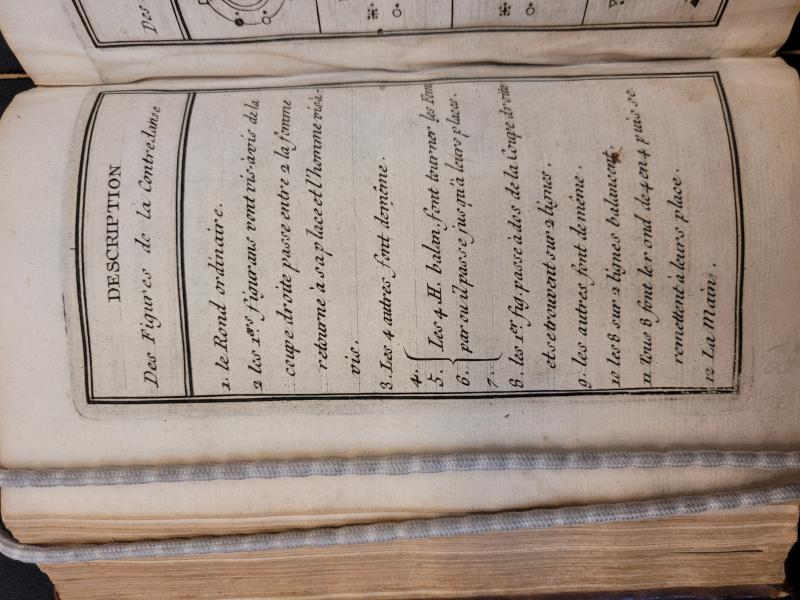 Des
DESCRIPTION
Des Figures de la Contredanse
1. le Rond ordinaire.
2 les 1ers figurans vont vis-à-vis de la
coupe droite passe entre 2 la femme
retourne à sa place et l'homme vis à-
vis.
3. Les 4 autres font de même.
4.
5. Les 4. H. balan, font tourner les Fem
6. par ou il passe jusqu'à leurs places.
7.
8. les 1er fig. passe à dos de la Coupe droite
et se trouvent sur 2 lignes.
9. les autres font de même.
10 les 8 sur 2 lignes balancent.
11 Tous 8 font le rond de 4 en 4 puis se
remettent à leurs place.
12 La Main.